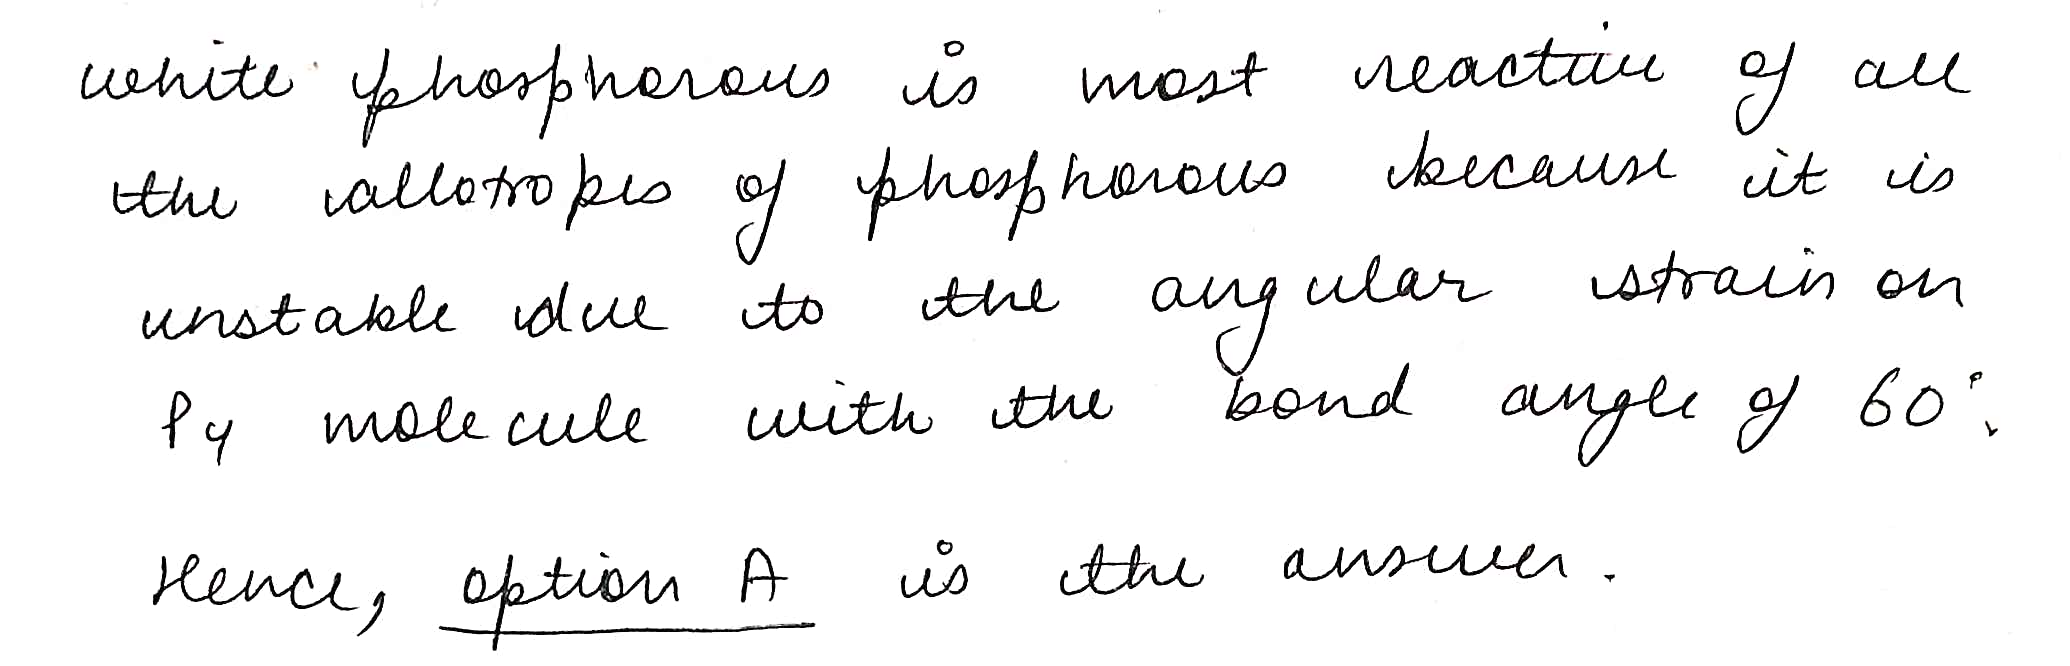 white phosphorous is most reactive of all
the allotropes of phosphorous because it is
unstable due to the angular strain on
P4 molecule with the bond angle of 60°.
Hence, option A is the answer.